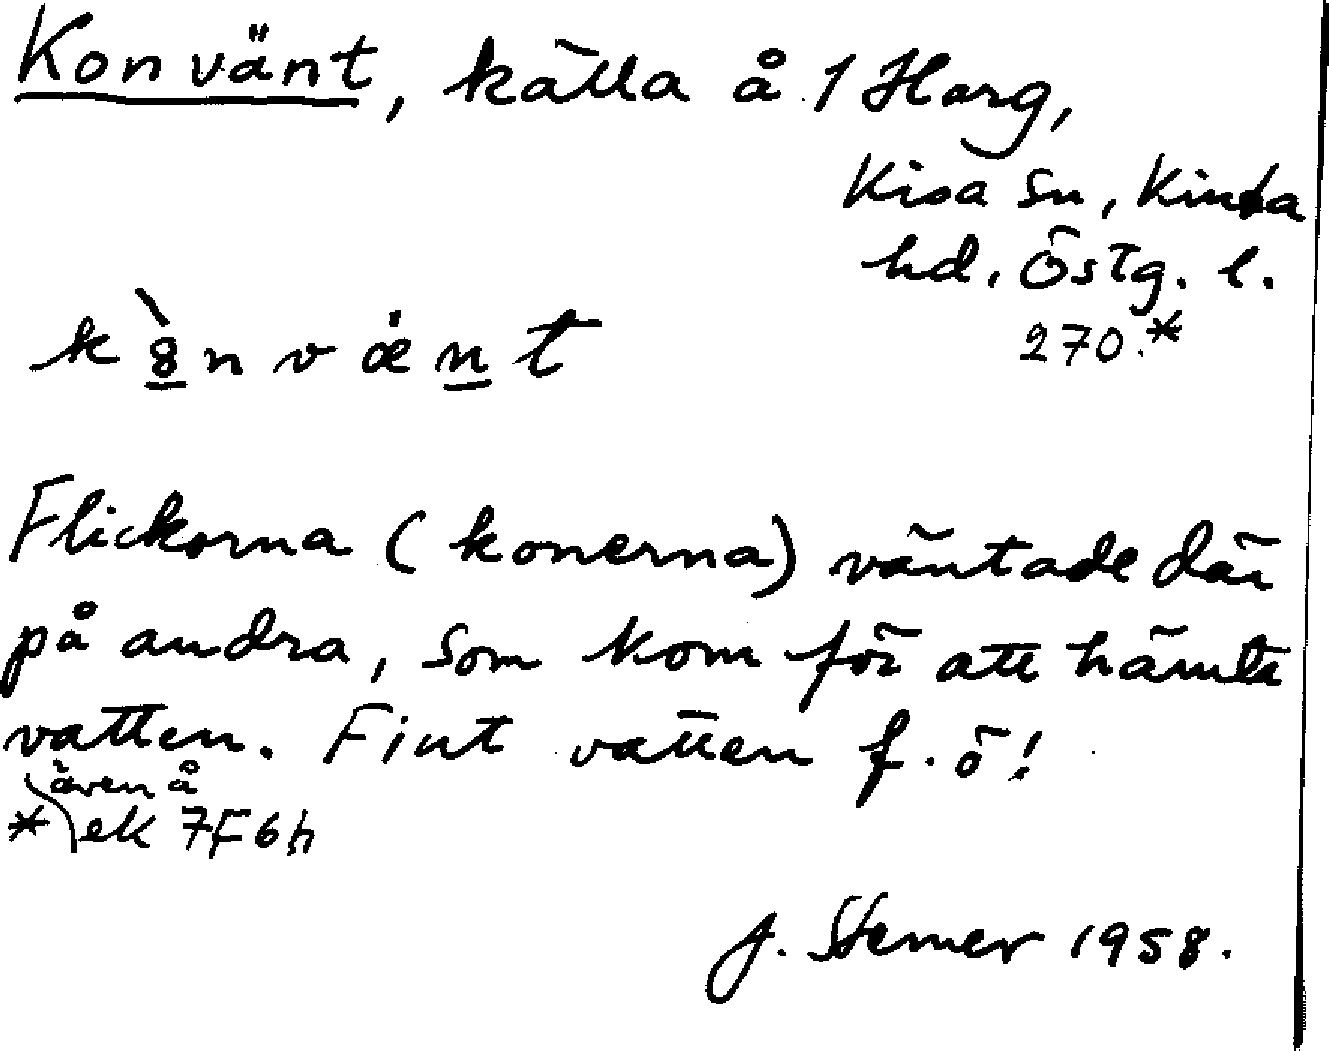 Konvänt, källa å 1 Harg,
Kisa sn, Kinda
hd, Östg. l.
270.*
k ò̱ n v ǽ n̲ t
Flickorna (konerna) väntade där
på andra, som kom för att hämta
vatten. Fint vatten f. ö!
även å
* ek 7F6h
J. Sterner 1958.